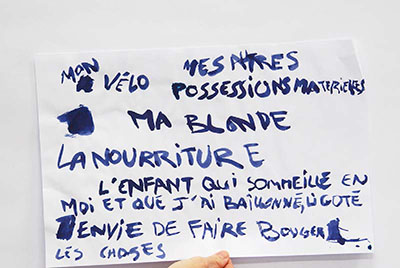 MON VÉLO MES AUTRES
POSSESSIONS MATERIELLES
MA BLONDE
LA NOURRITURE
L'ENFANT QUI SOMMEILLE EN
MOI ET QUE J'AI BAILLONNÉ, LIGOTÉ
ENVIE DE FAIRE BOUGER
LES CHOSES